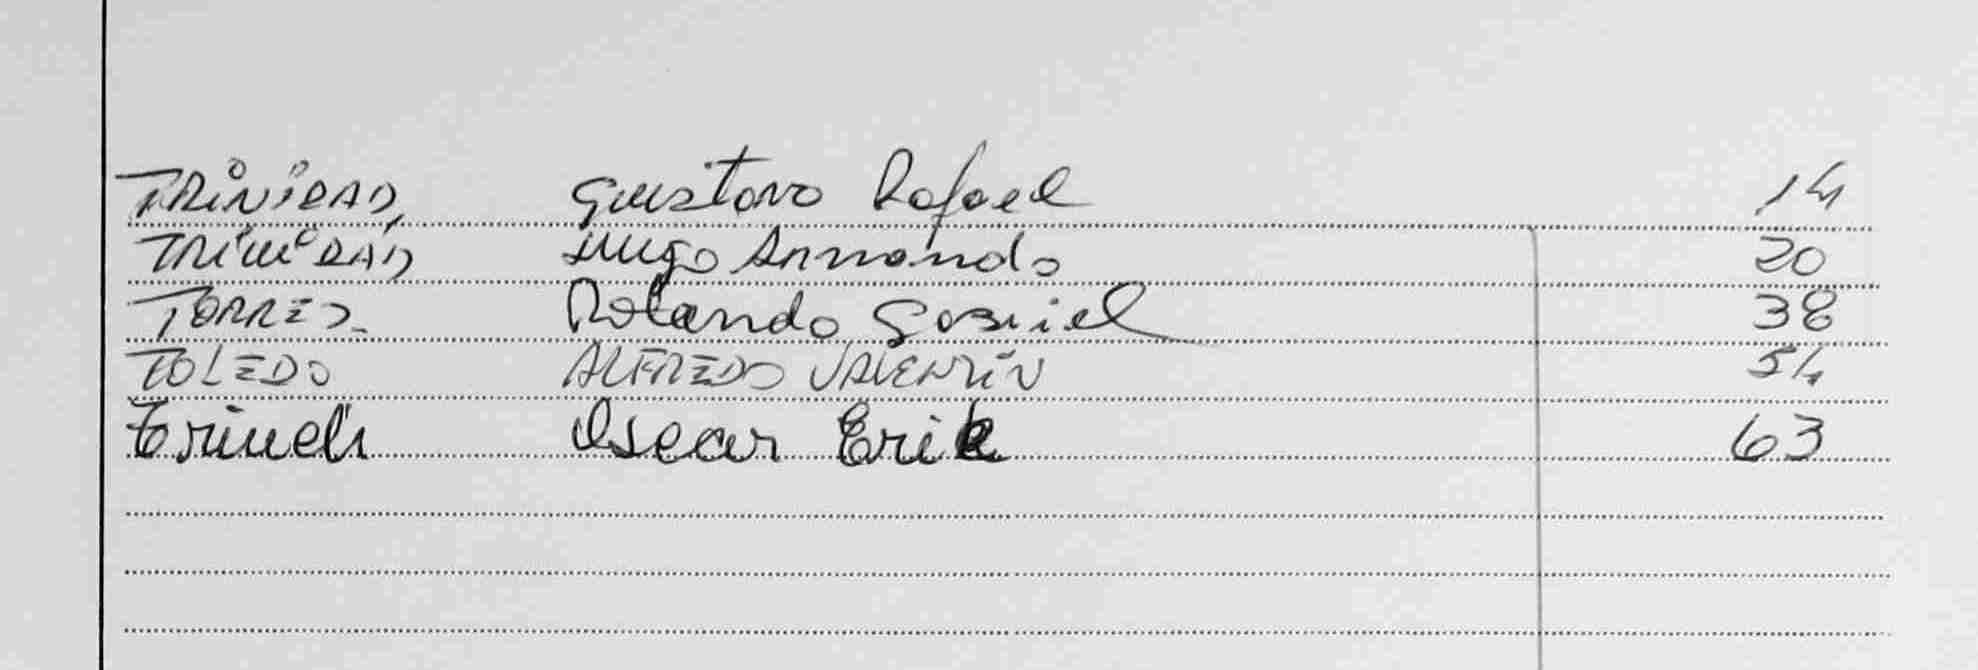 TRINIDAD, Gustavo Rafael 14
TRINIDAD Hugo Armando 20
TORRES Rolando Gabriel 38
TOLEDO ALFREDO VALENTÍN 54
Oscar Erik 63